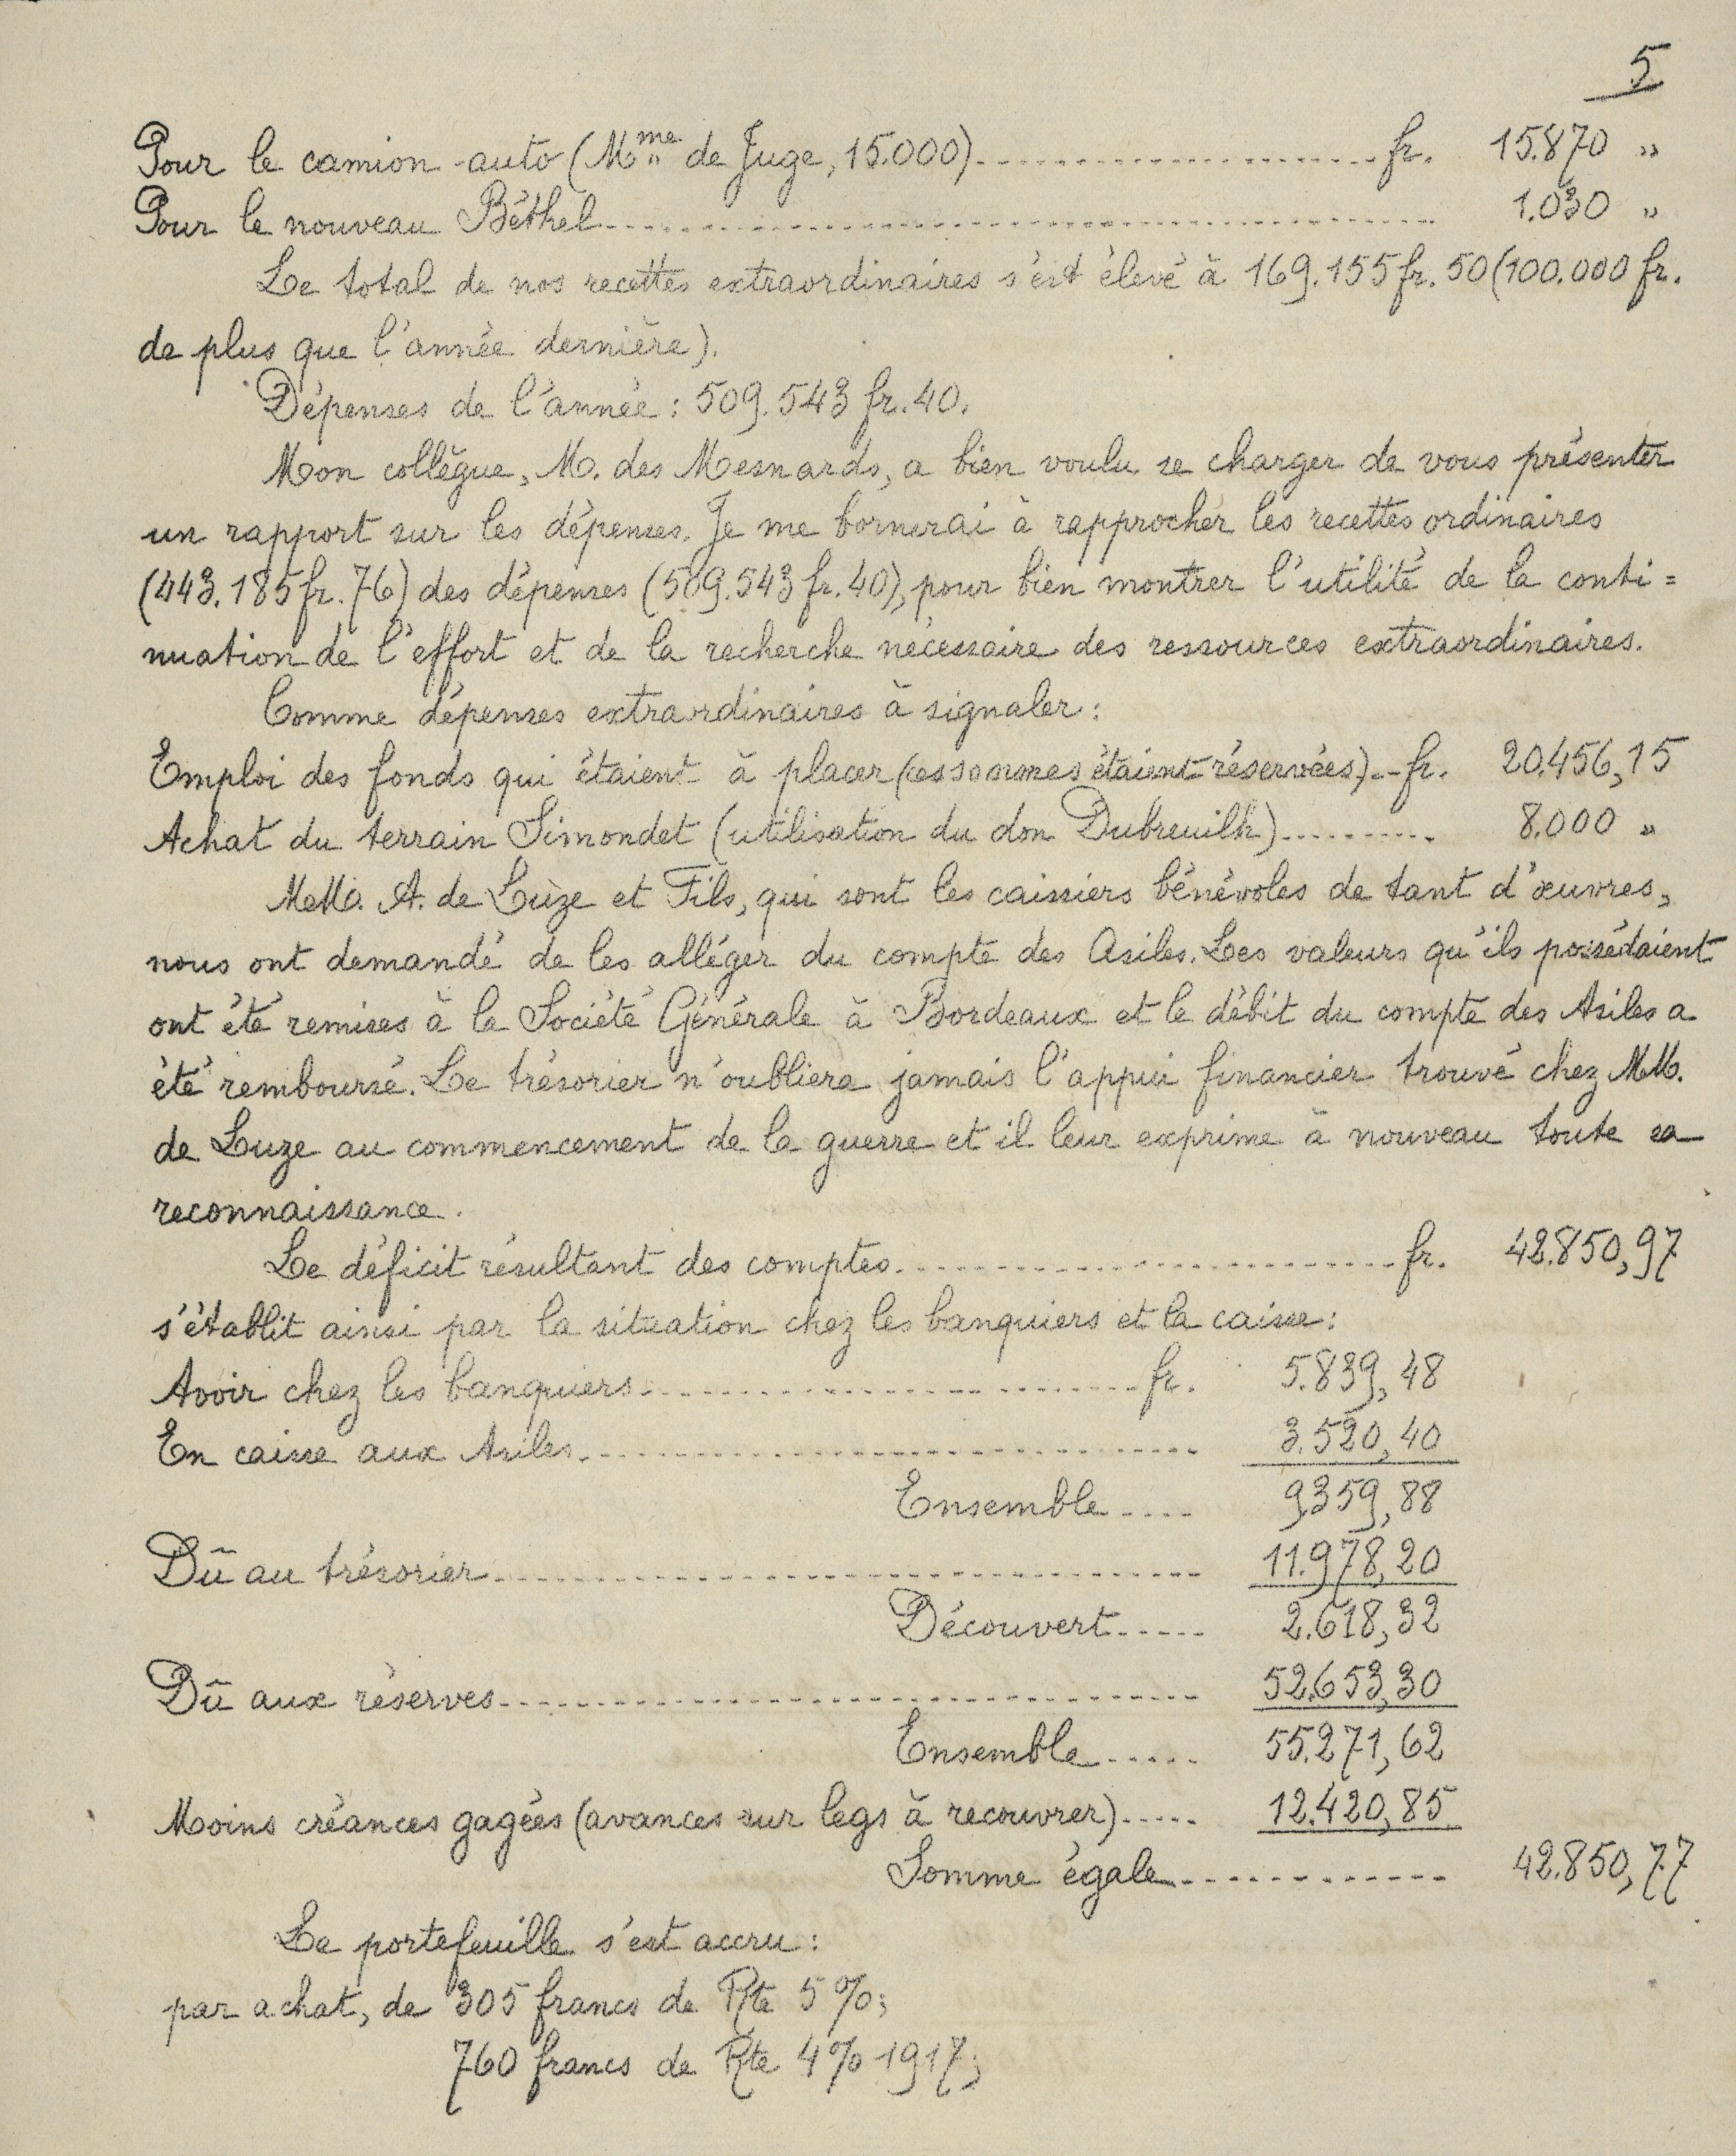 5
Pour le camion-auto (Mme de Juge, 15.000) fr. 15.870 "
Pour le nouveau Béthel 1.030 "
Le total de nos recettes extraordinaires s'est élevé à 169.155 fr. 50 (100.000 fr.
de plus que l'année dernière).
Dépenses de l'année : 509.543 fr. 40.
Mon collègue, M. des Mesnards, a bien voulu se charger de vous présenter
un rapport sur les dépenses. Je me bornerai à rapprocher les recettes ordinaires
(443.185 fr. 76) des dépenses (509.543 fr. 40), pour bien montrer l'utilité de la conti=
nuation de l'effort et de la recherche nécessaire des ressources extraordinaires.
Comme dépenses extraordinaires à signaler :
Emploi des fonds qui étaient à placer (ces sommes étaient réservées) fr. 20.456,15
Achat du terrain Simondet (utilisation du don Dubreuilh) 8.000 "
MM. A. de Luze et Fils, qui sont les caissiers bénévoles de tant d'œuvres,
nous ont demandé de les alléger du compte des Asiles. Les valeurs qu'ils possédaient
ont été remises à la Société Générale à Bordeaux et le débit du compte des Asiles a
été remboursé. Le trésorier n'oubliera jamais l'appui financier trouvé chez MM.
de Luze au commencement de la guerre et il leur exprime à nouveau toute sa
reconnaissance.
Le déficit résultant des comptes fr. 42.850,97
s'établit ainsi par la situation chez les banquiers et la caisse :
Avoir chez les banquiers fr. 5.839,48
En caisse aux Asiles 3.520,40
Ensemble 9.359,88
Dû au trésorier 11.978,20
Découvert 2.618,32
Dû aux réserves 52.653,30
Ensemble 55.271,62
Moins créances gagées (avances sur legs à recouvrer) 12.420,85
Somme égale 42.850,77
Le portefeuille s'est accru :
par achat, de 305 francs de Rte 5 % ;
760 francs de Rte 4 % 1917 ;